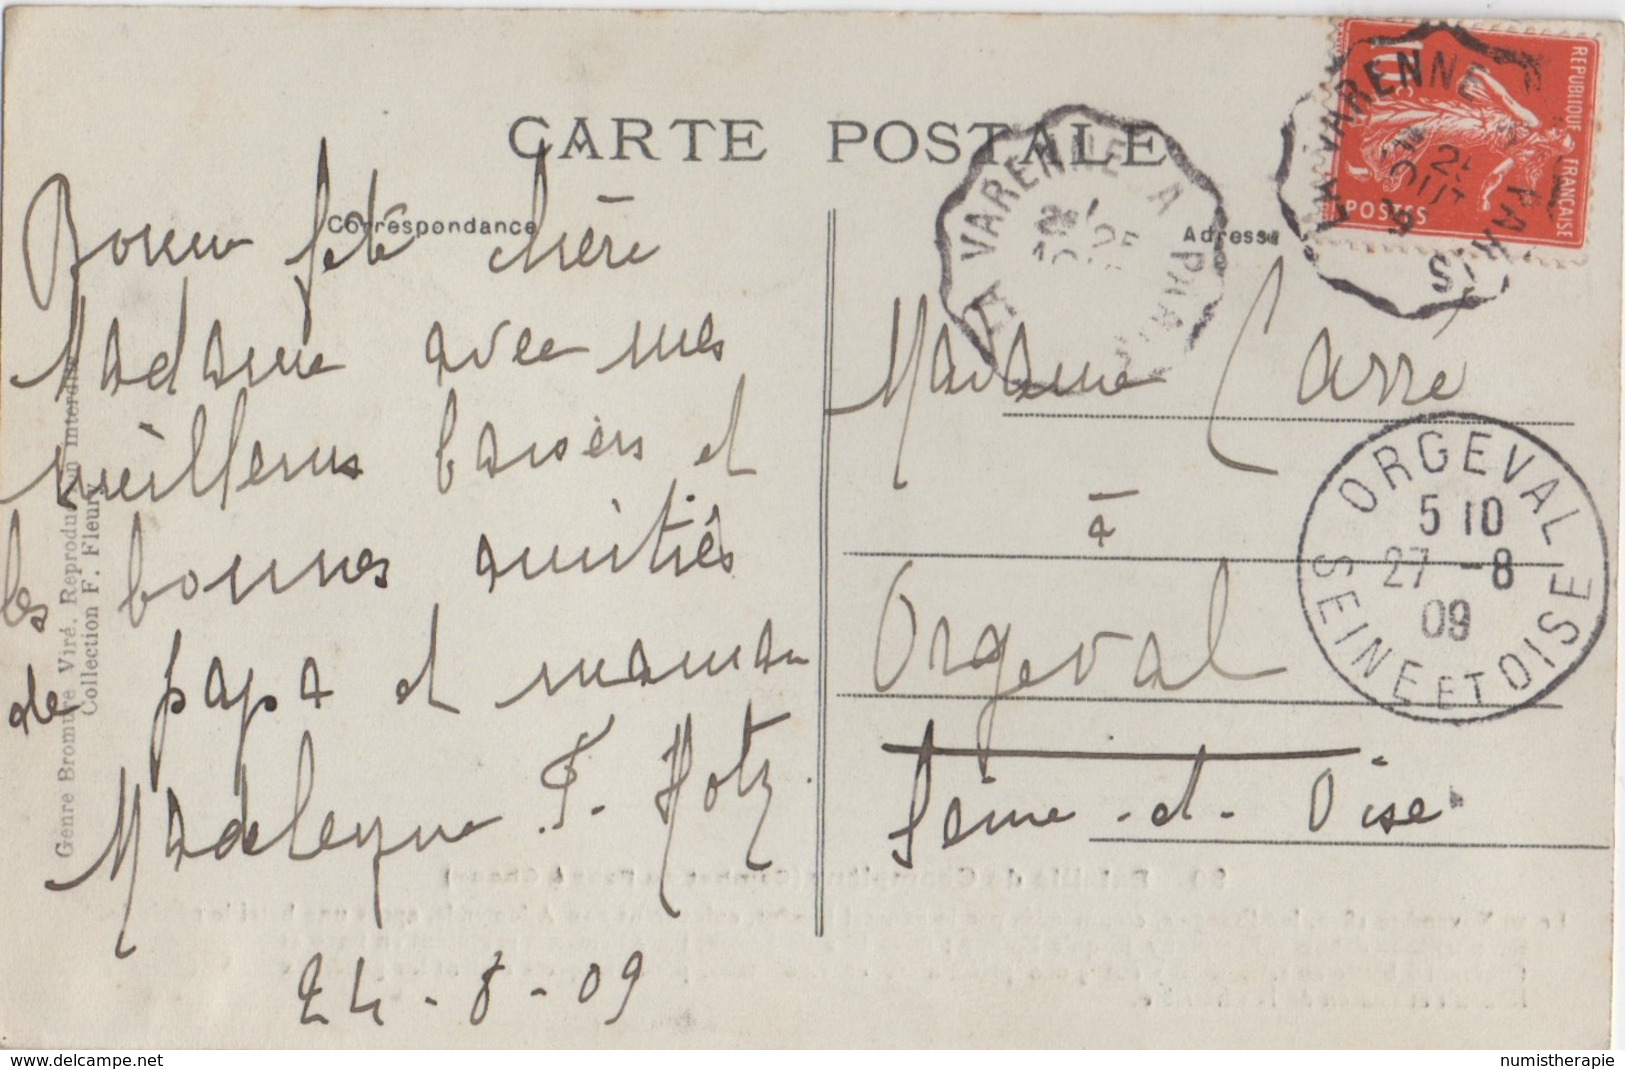 CARTE POSTALE
Correspondance
Adresse
Bonne fête chère
Madame avec mes
meilleurs baisers et
les bonnes amitiés
de papa et maman
Madeleyne F. Hotz.
24-8-09
Madame Carré
à
Orgeval
Seine-et-Oise
LA VARENNE A PARIS
25
LA VARENNE A PARIS
25
REPUBLIQUE FRANÇAISE
10c
POSTES
ORGEVAL
5 10
27 -8
09
SEINE ET OISE
Genre Bromure Viré. Reproduction interdite
Collection F. Fleury
www.delcampe.net
numistherapie